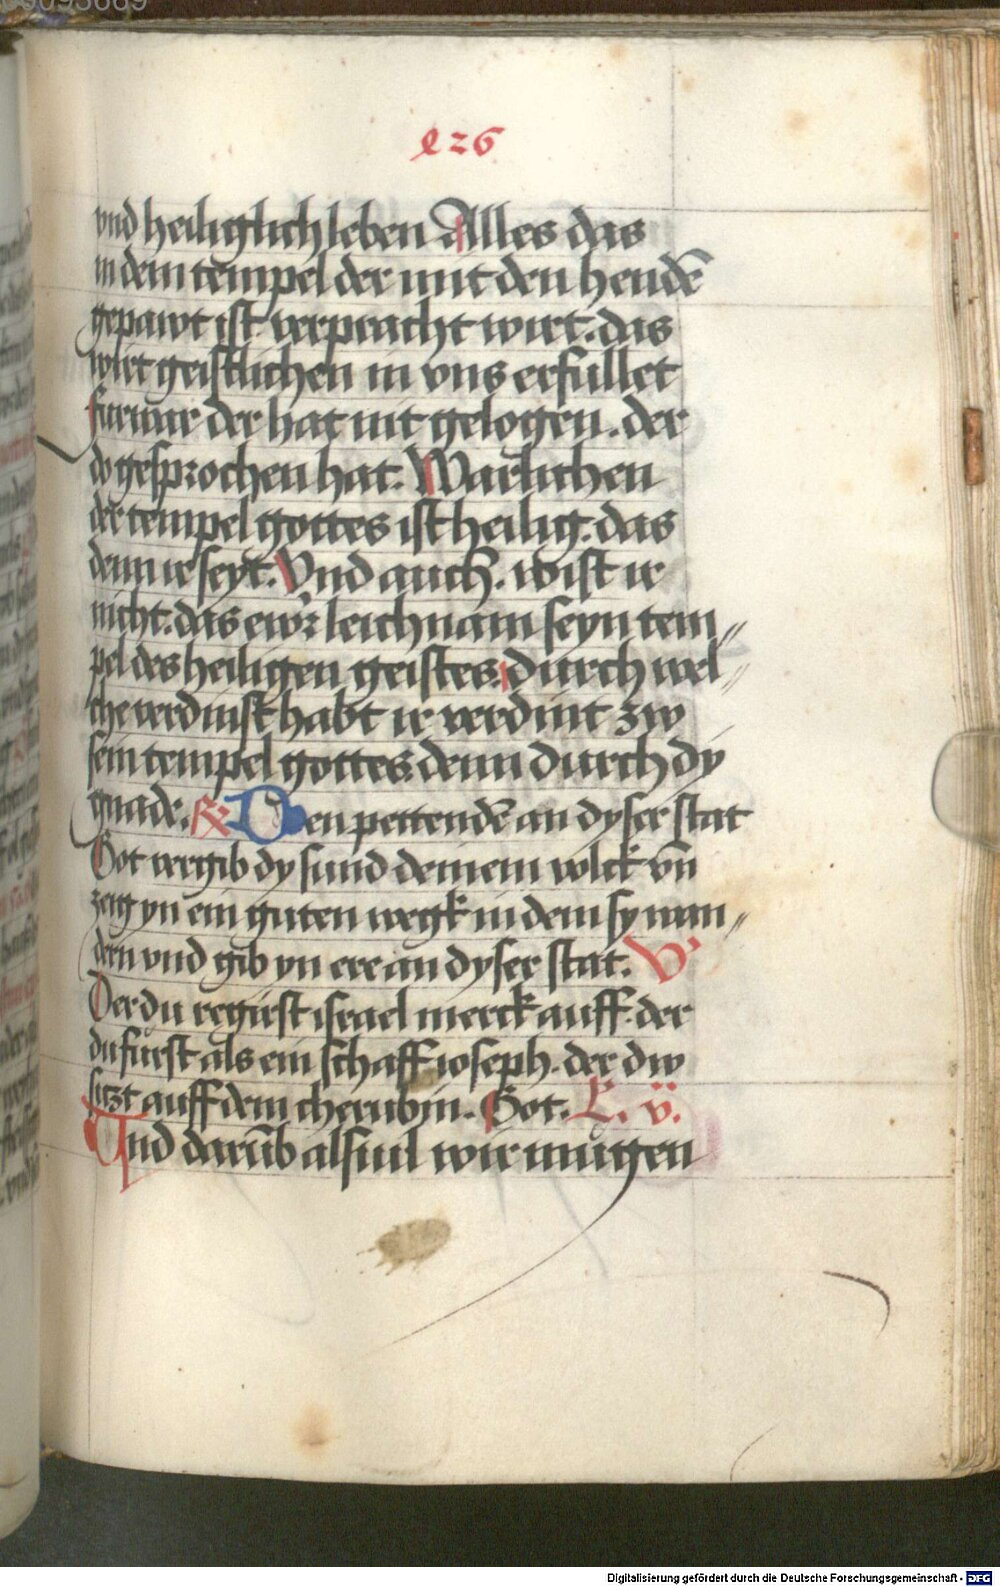 126
vnd heiliglich leben Alles das
in dem tempel der mit den hendē
gepawt ist verpracht wirt. das
wirt geistlichen in vns erfullet
furwar der hat nit gelogen. der
do gesprochen hat. Warlichen
der tempel gottes ist heilig. das
denn ir seyt. Vnd auch. wist ir
nicht. das ewr leichnam seyn tem〃
pel des heiligen geistes. durch wel〃
che verdinst habt ir verdint zw
sein tempel gottes denn durch dy
gnade. R Den pettendē an dyser stat
Got vergib dy sund deinem volck vn̄
zeig yn ein guten wegk in dem sy wan〃
dern vnd gib yn ere an dyser stat. V
Der du regirst israel merck auff. der
du furst als ein schaff ioseph. der dw
sitzt auff dem cherubin. Got. L. v.
Vnd darūb alsuil wir mugen
Digitalisierung gefördert durch die Deutsche Forschungsgemeinschaft - DFG